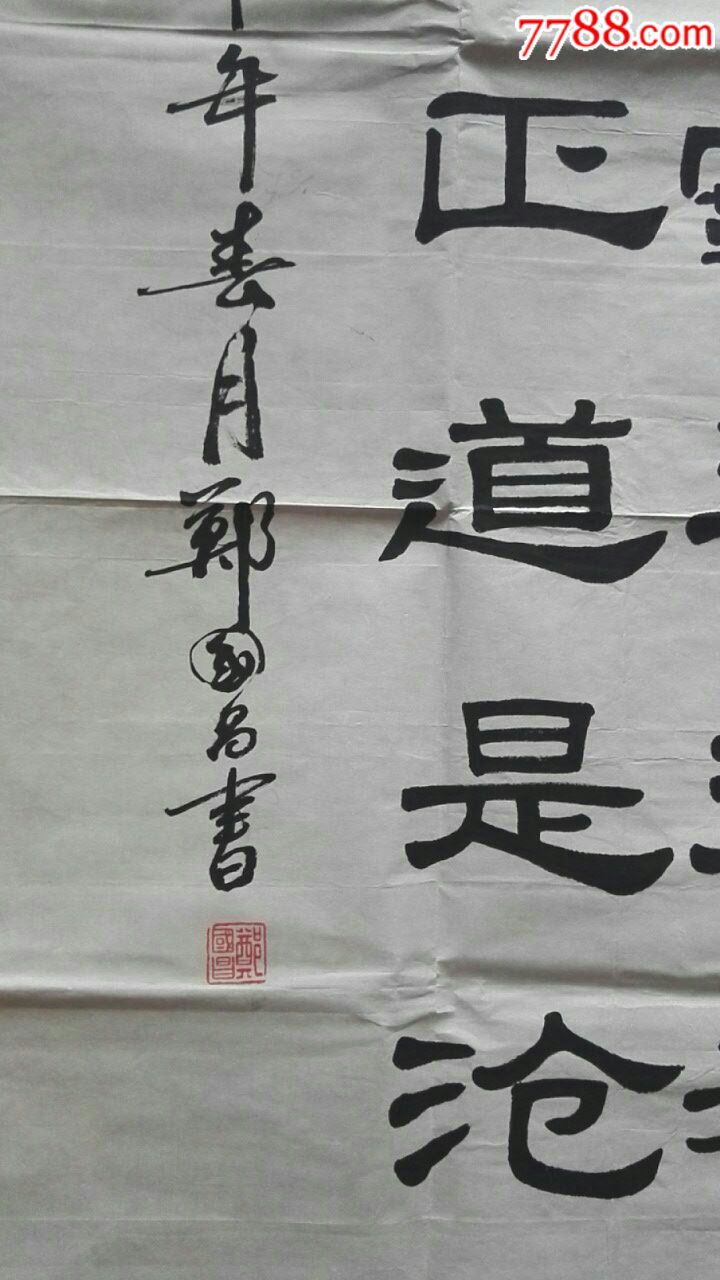 7788.com
正道是沧
年春月鄭國昌書
鄭國昌